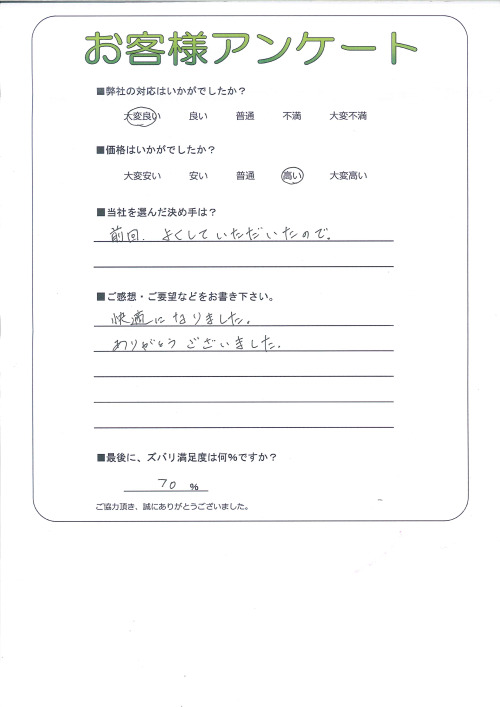 お客様アンケート
■弊社の対応はいかがでしたか？
大変良い 良い 普通 不満 大変不満
■価格はいかがでしたか？
大変安い 安い 普通 高い 大変高い
■当社を選んだ決め手は？
前回、よくしていただいたので。
■ご感想・ご要望などをお書き下さい。
快適になりました。
ありがとうございました。
■最後に、ズバリ満足度は何％ですか？
70 ％
ご協力頂き、誠にありがとうございました。